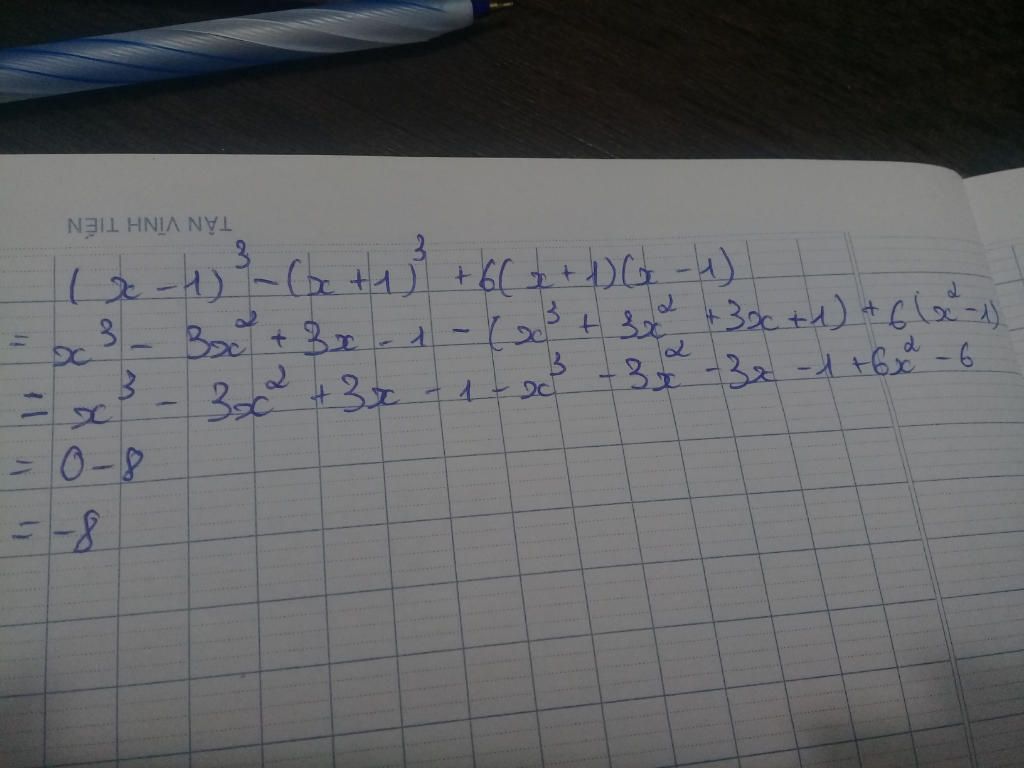 TÂN VĨNH TIẾN
(x - 1)³ - (x + 1)³ + 6(x + 1)(x - 1)
= x³ - 3x² + 3x - 1 - (x³ + 3x² + 3x + 1) + 6(x² - 1)
= x³ - 3x² + 3x - 1 - x³ - 3x² - 3x - 1 + 6x² - 6
= 0 - 8
= -8